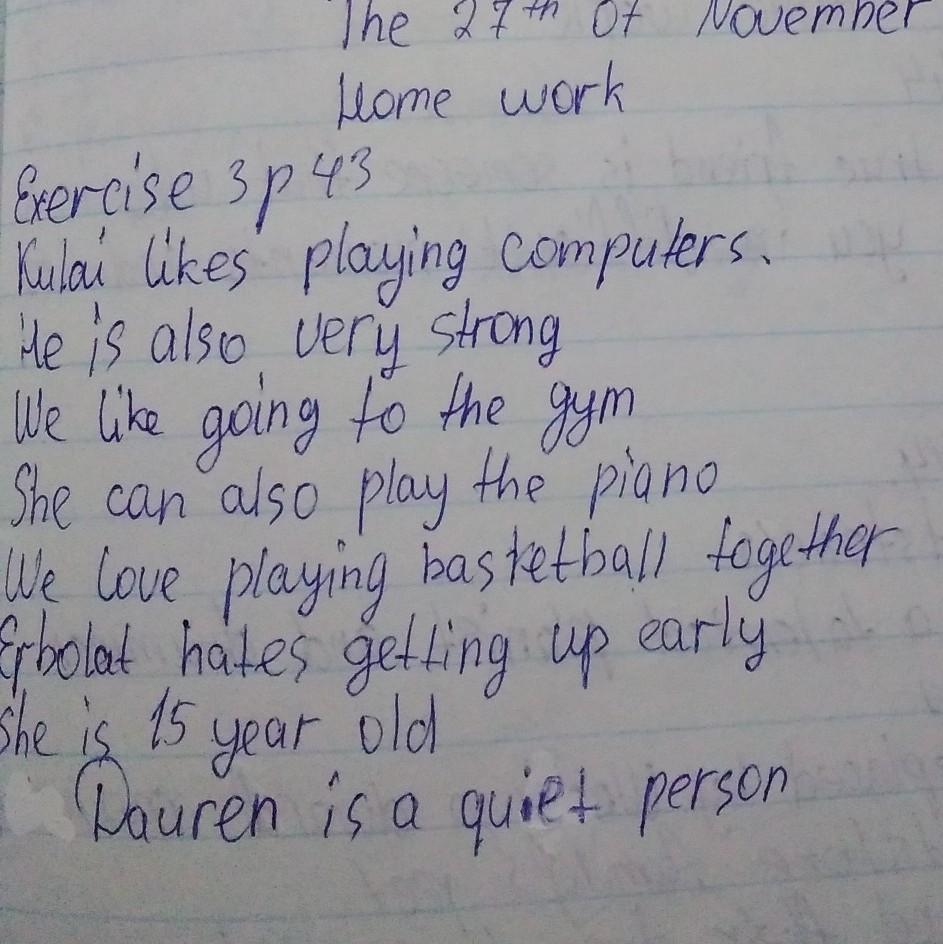 The 27th of November
Home work
Exercise 3 p 43
Kulai likes playing computers.
He is also very strong
We like going to the gym
She can also play the piano
We love playing basketball together
Erbolat hates getting up early
She is 15 year old
Dauren is a quiet person